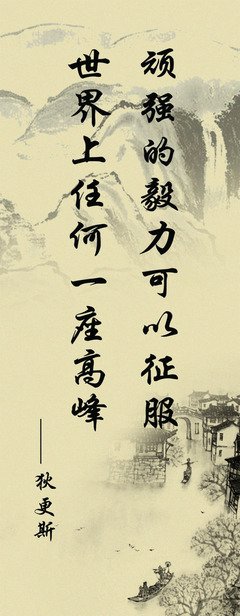 顽强的毅力可以征服
世界上任何一座高峰
——狄更斯